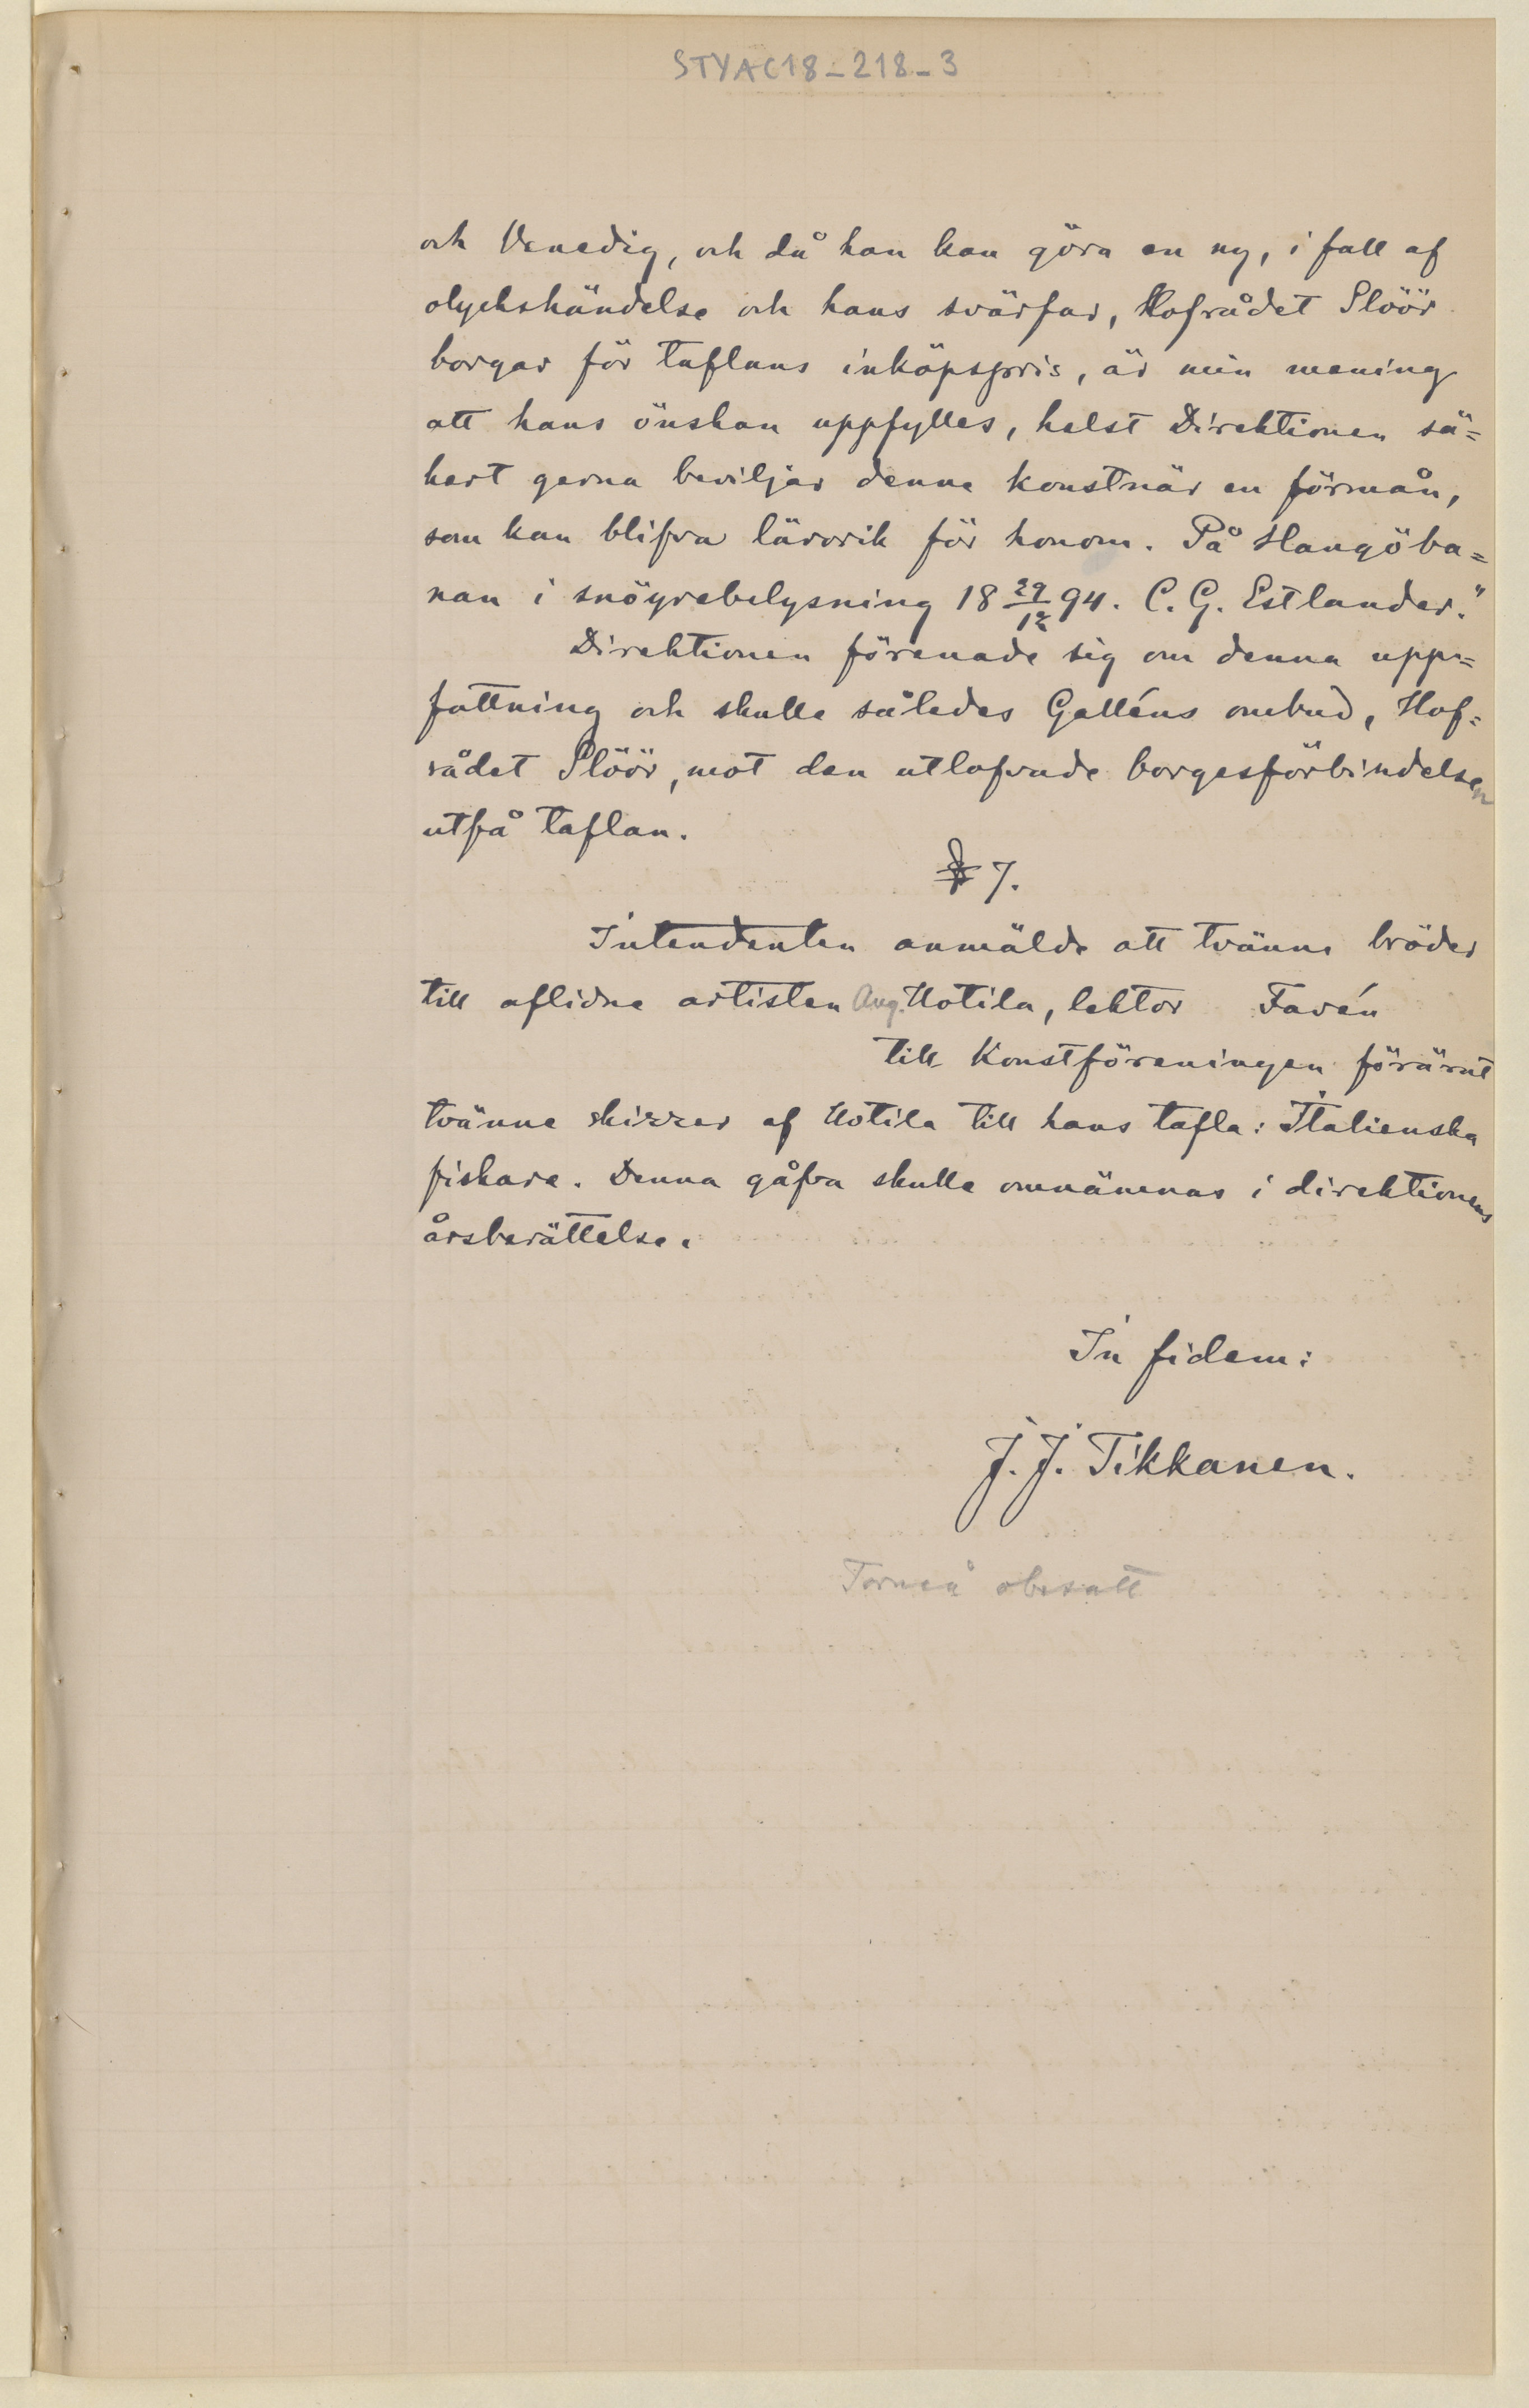 STYAC18_218_3
och Venedig, och då han kan göra en ny, i fall af
olyckshändelse och hans svärfar, Hofrådet Slöör
borgar för taflans inköpspris, är min mening
att hans önskan uppfylles, helst Direktionen sä=
kert gerna beviljar denne konstnär en förmån,
som kan blifva lärorik för honom. På Hangöba=
nan i snöyrebelysning 18 29/12 94. C. G. Estlander."
Direktionen förenade sig om denna upp=
fattning och skulle således Galléns ombud, Hof=
rådet Slöör, mot den utlofvade borgesförbindelsen
utfå taflan.
§ 7.
Intendenten anmälde att tvänne bröder
till aflidne artisten Aug. Uotila, lektor Favén
till Konstföreningen förärat
tvänne skizzer af Uotila till hans tafla: Italienska
fiskare. Denna gåfva skulle omnämnas i direktionens
årsberättelse.
In fidem:
J. J. Tikkanen.
Torneå obesatt